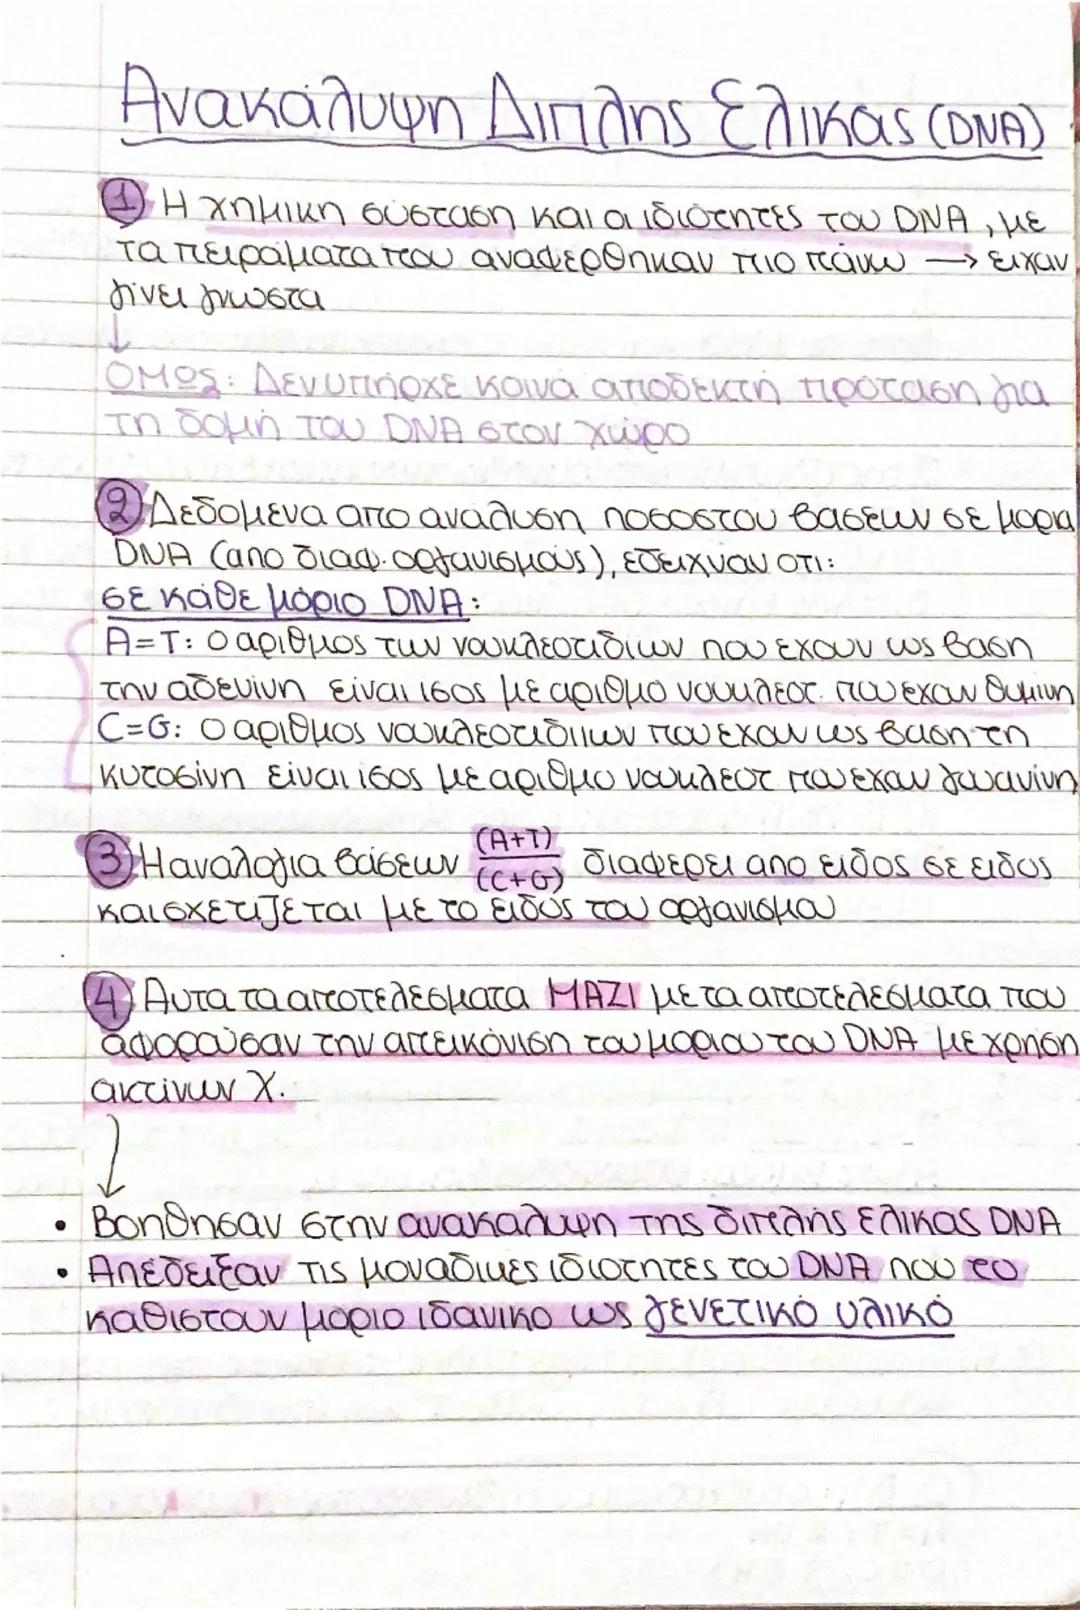 Ανακάλυψη Διπλής Έλικας (DNA)
1 Η χημικη σύσταση και οι ιδιότητες του DNA, με
τα πειράματα που αναφερθηκαν πιο πάνω → ειχαν
γίνει γνωστα
↓
ΟΜΩΣ: Δεν υπήρχε κοινά αποδεκτή πρόταση για
τη δομή του DNA στον χώρο
2 Δεδομενα απο αναλυση ποσοστου βασεων σε μορια
DNA (απο διαφ. οργανισμούς), εδειχναν οτι:
σε κάθε μόριο DNA:
A=T: Ο αριθμος των νουκλεοτιδιων που εχουν ως βαση
την αδενίνη είναι ισος με αριθμο νουκλεοτ. που εχουν θυμινη
C=G: Ο αριθμος νουκλεοτιδιιων που εχουν ως βαση τη
κυτοσίνη είναι ισος με αριθμο νουκλεοτ που εχουν γουανίνη
3 Η αναλογια βάσεων (A+T)/(C+G) διαφερει απο ειδος σε ειδος
και σχετιζεται με το ειδος του οργανισμου
4 Αυτα τα αποτελεσματα ΜΑΖΙ με τα αποτελεσματα που
αφορούσαν την απεικόνιση του μοριου του DNA με χρηση
ακτίνων Χ.
↓
• Βοηθησαν στην ανακαλυψη της διπλής ελικας DNA
• Απέδειξαν τις μοναδικες ιδιοτητες του DNA που το
καθιστουν μοριο ιδανικο ως γενετικό υλικό